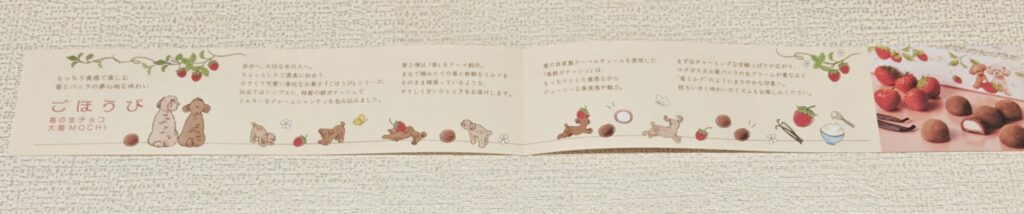 もっちり食感で楽しむ
苺とバニラの夢心地な味わい
ごほうび
苺の生チョコ
大福MOCHI
自分へ 大切なあの人へ。
ちょっとしたご褒美に似合う、
小さくて可愛い身近なお菓子『ごほうび』シリーズ。
仕立てはシンプルに、特製の餅ガナッシュで
ミルキーなクレームシャンティを包み込みました。
第2弾は「苺」をテーマ創作。
まるで摘みたての苺と新鮮なミルクを
そのまま頬張っているような、
やさしく甘いひとときをお届けします。
苺の自家製クーベルチュールを使用した
「苺餅ガナッシュ」は、
もっちりとした食感ながら
ジューシーな果実感が魅力。
まずはチャーミングな甘酸っぱさが広がり、
マダガスカル産バニラの生クリームが重なると
“苺ミルク”のようにまろやかな印象へ。
移ろいゆく味わいのリズムをお楽しみください。